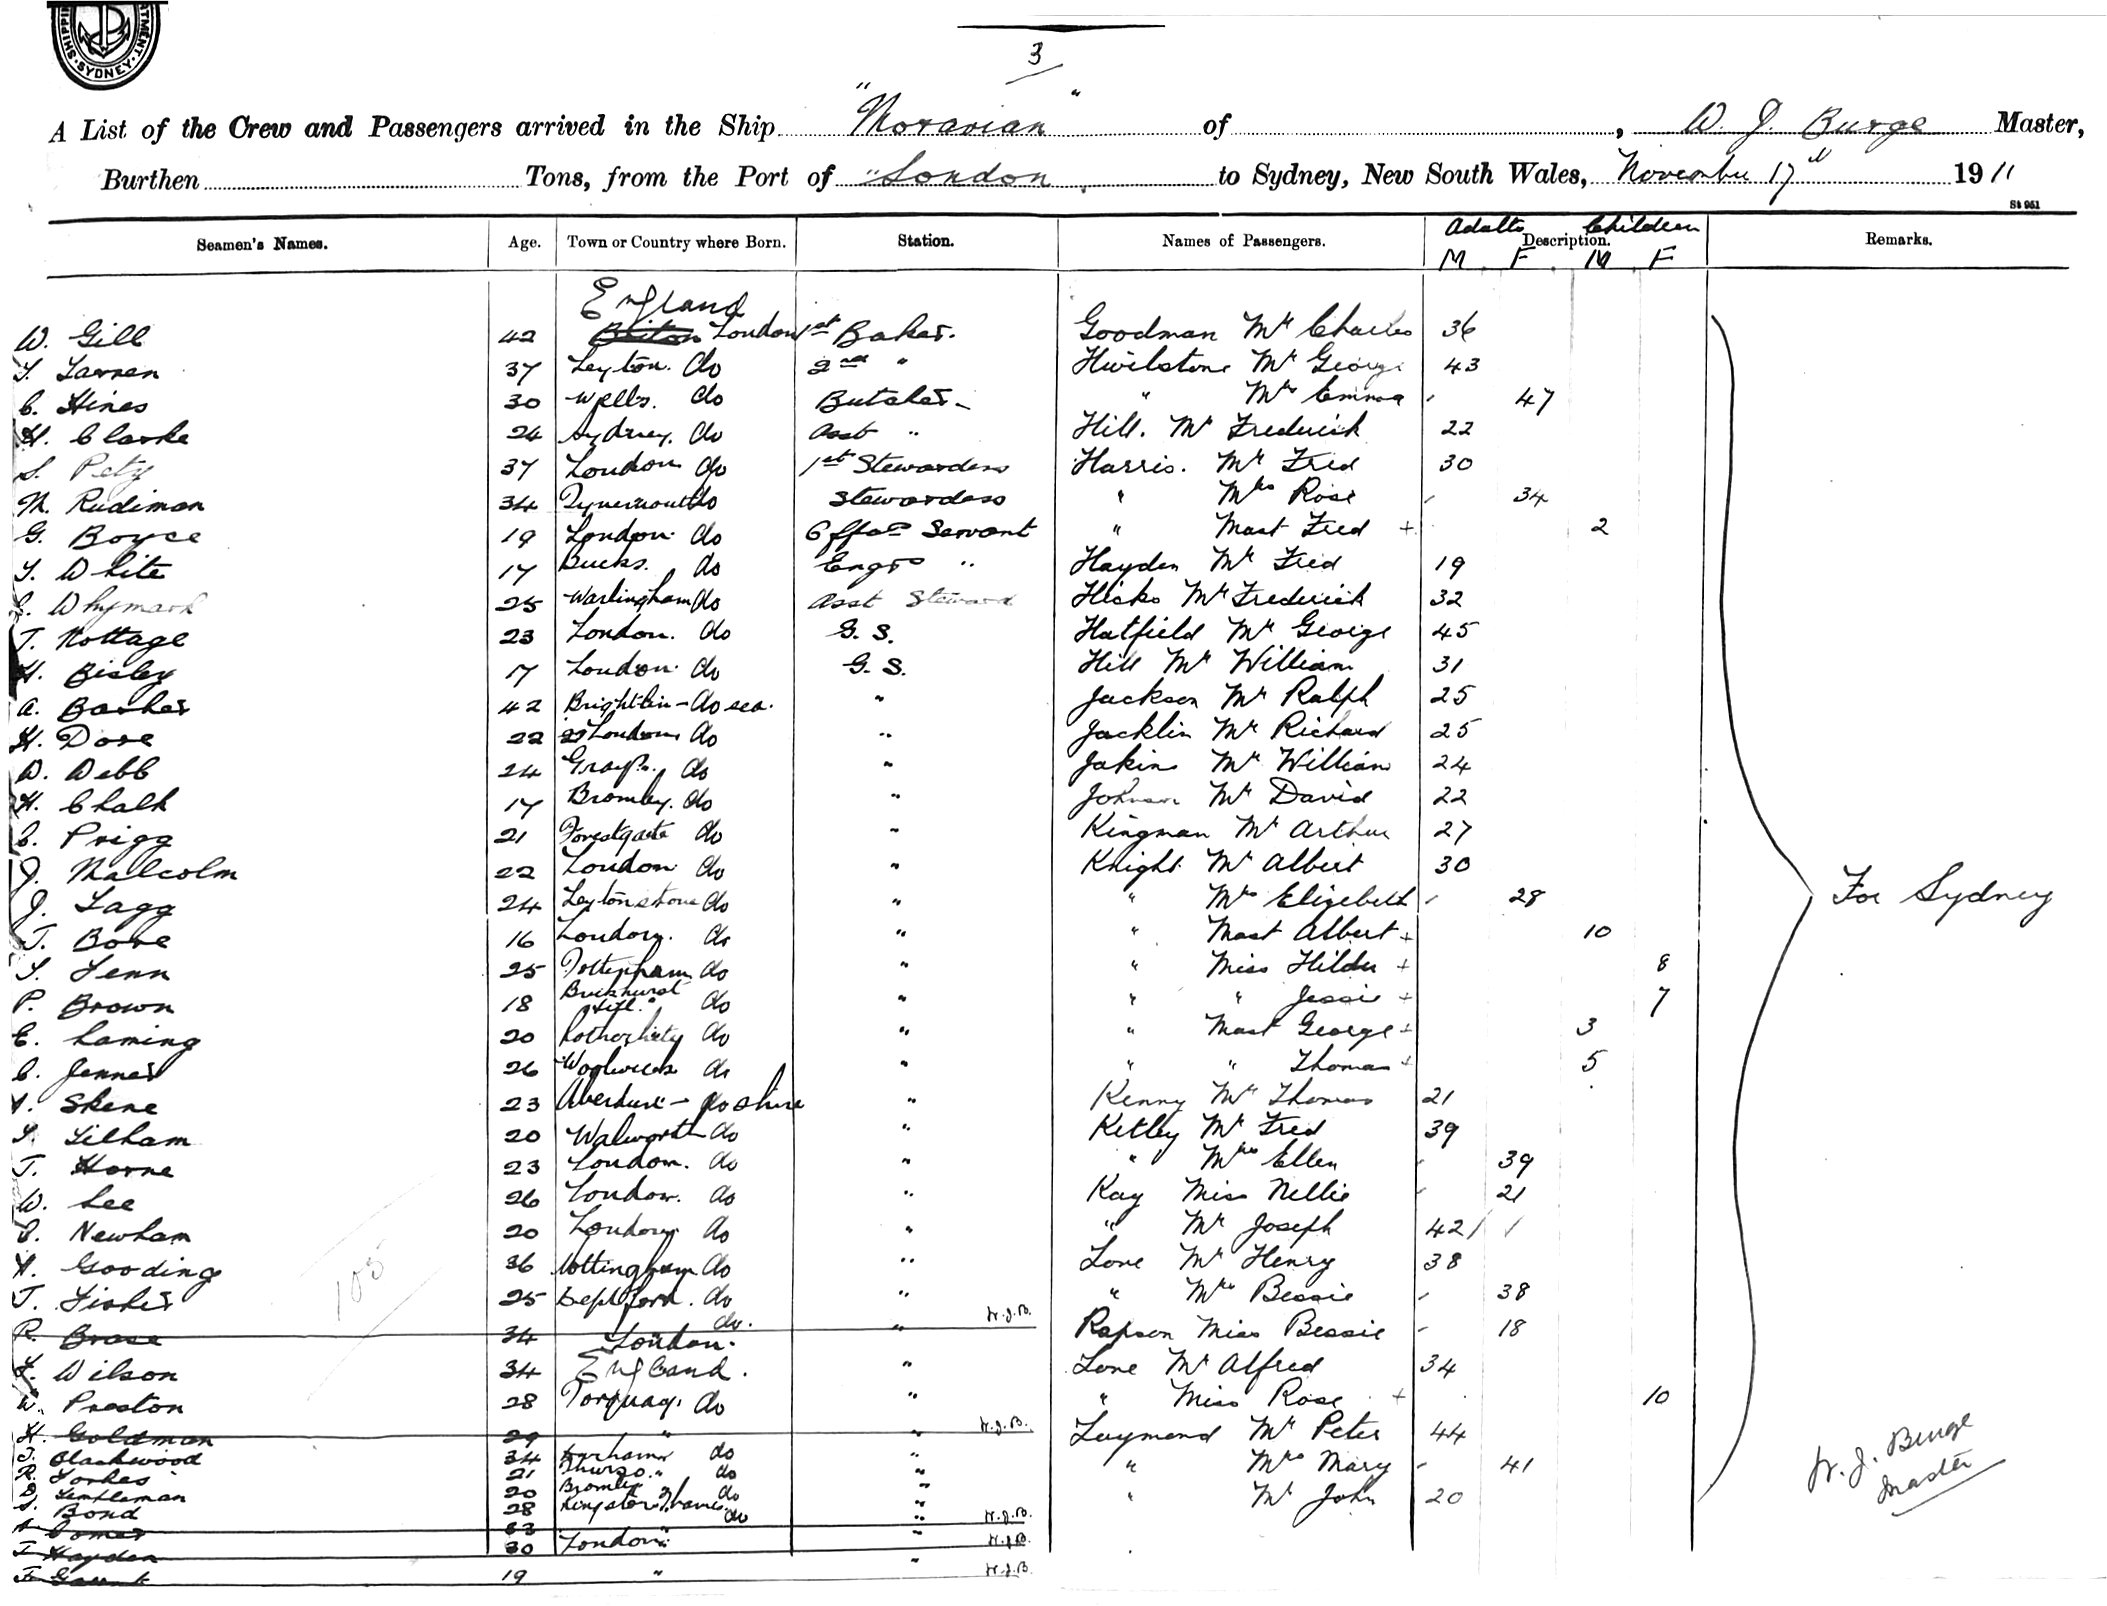 SHIPPING DEPARTMENT SYDNEY
3
A List of the Crew and Passengers arrived in the Ship "Moravian" of , W. J. Burge Master,
Burthen Tons, from the Port of "London". to Sydney, New South Wales, November 17th 1911
St 951
Seamen's Names. Age. Town or Country where Born. Station. Names of Passengers. Adults Children Description. Remarks.
M F M F
England
W. Gill 42 London 1st Baker. Goodman Mr Charles 36
37 Leyton. do 2nd " Mr George 43
C. Hines 30 Wells. do Butcher - " Mrs Emma - 47
H. Clarke 24 Sydney. do Asst " Hill. Mr Frederick 22
S. Pety 37 London do 1st Stewardess Harris. Mr Fred 30
M. Rudiman 34 Tynemouth do Stewardess " Mrs Rose - 34
G. Boyce 19 London. do Offrs Servant " Mast Fred + 2
White 17 Bucks. do Engrs " Hayden Mr Fred 19
Whymark 25 Warlingham do Asst Steward Hicks Mr Frederick 32
T. Nottage 23 London. do G. S. Hatfield Mr George 45
H. Bisley 17 London. do G. S. Hill Mr William 31
A. Barker 42 Brightlin - do sea. " Jackson Mr Ralph 25
H. Dove 22 London do " Jacklin Mr Richard 25
W. Webb 24 Grays. do " Jakins Mr William 24
H. Chalk 17 Bromley. do " Johnson Mr David 22
C. Prigg 21 Forestgate do " Kingman Mr Arthur 27
J. Malcolm 22 London do " Knight Mr Albert 30
J. Tagg 24 Leytonstone do " " Mrs Elizebeth - 28
T. Bove 16 London. do " " Mast Albert + 10
25 Tottenham do " " Miss Hilda + 8
P. Brown 18 Buckhurst Hill. " do " " " Jessie + 7
E. Laming 20 Rotherhithe do " " Mast George + 3
C. Jenner 26 Woolwich do " " " Thomas + 5
Skene 23 Aberdeen - do shire " Kenny Mr Thomas 21
20 Walworth do " Ketley Mr Fred 39
T. Horne 23 London. do " " Mrs Ellen - 39
W. Lee 26 London. do " Kay Miss Nellie - 21
Newham 20 London do " " Mr Joseph 42
H. Gooding 36 Nottingham do " Love Mr Henry 38
T. Fisher 25 Deptford. do " " Mrs Bessie - 38
R. Brase 34 London. do. " W.J.B. Rapson Miss Bessie - 18
Wilson 34 England. " Love Mr Alfred 34
W. Preston 28 Torquay. do " " Miss Rose + 10
H. Goldman 29 " " W.J.B. Laymond Mr Peter 44
T. Blackwood 34 Durham do " " Mrs Mary - 41
R. Forbes 21 Thurso. " do " Mr John 20
Gentleman 20 Bromley do "
Bond 28 Kingston Thames. do " W.J.B.
63 "
Hayden 30 London " W.J.B.
19 " " W.J.B.
103
For Sydney
W. J. Burge
Master